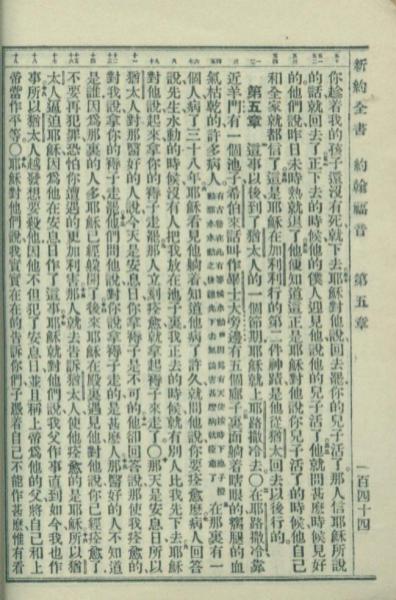 新約全書 約翰福音 第五章 一百四十四
你趁着我的孩子還沒有死就下去耶穌對他說回去罷你的兒子活了那人信耶穌所說
的話就回去了正下去的時候他的僕人迎見他說他的兒子活了他就問甚麼時候見好
的他們說昨日未時熱就退了他便知道這正是耶穌對他說你兒子活了的時候他自己
和全家就都信了這是耶穌在加利利行的第二件神蹟是他從猶太回去以後行的
第五章 這事以後到了猶太人的一個節期耶穌就上耶路撒冷去〇在耶路撒冷靠
近羊門有一個池子希伯來話叫作畢士大旁邊有五個廊子裏面躺着瞎眼的瘸腿的血
氣枯乾的許多病人 在那裏有一
個人病了三十八年耶穌看見他躺着知道他病了許久就問他說你要痊愈麼病人回答
說先生水動的時候沒有人把我放在池子裏我正去的時候就有別人比我先下去耶穌
對他說起來拿你的褥子走罷那人立刻痊愈就拿起褥子來走了〇那天是安息日所以
猶太人對那醫好的人說今天是安息日你拿褥子是不可的他卻回答說那使我痊愈的
對我說拿你的褥子走罷他們問他說對你說拿褥子走的是甚麼人那醫好的人不知道
是誰因爲那裏的人多耶穌已經躲開了後來耶穌在殿裏遇見他對他說你已經痊愈了
不要再犯罪恐怕你遭遇的更加利害那人就去告訴猶太人使他痊愈的是耶穌所以猶
太人逼迫耶穌因爲他在安息日作了這事耶穌就對他們說我父作事直到如今我也作
事所以猶太人越發想要殺他因他不但犯了安息日並且稱上帝爲他的父將自己和上
帝當作平等〇耶穌對他們說我實實在在的告訴你們子憑着自己不能作甚麼惟有看